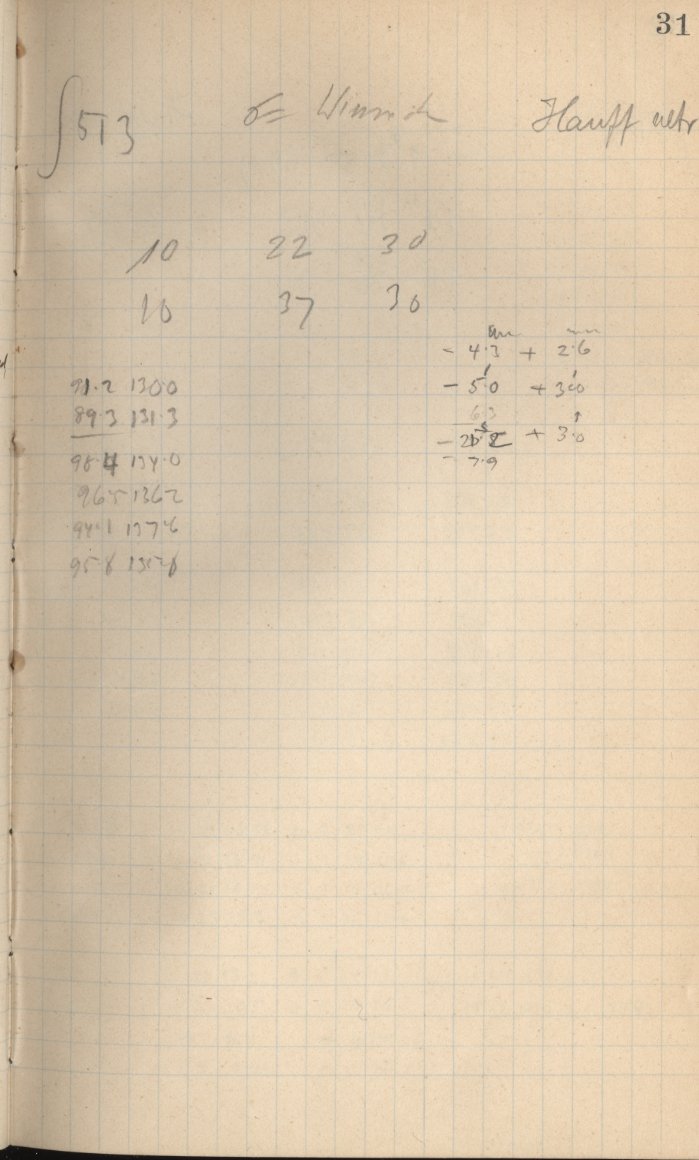 31
∫513 σ= Hauff
10 22 30
10 37 30
mm mm
- 4.3 + 2.6
91.2 130.0 - 5.0 + 3.0
89.3 131.3 6.3
+ 3.0
98.4 134.0 - 7.9
96.5 136.2
94.1 137.6
95.8